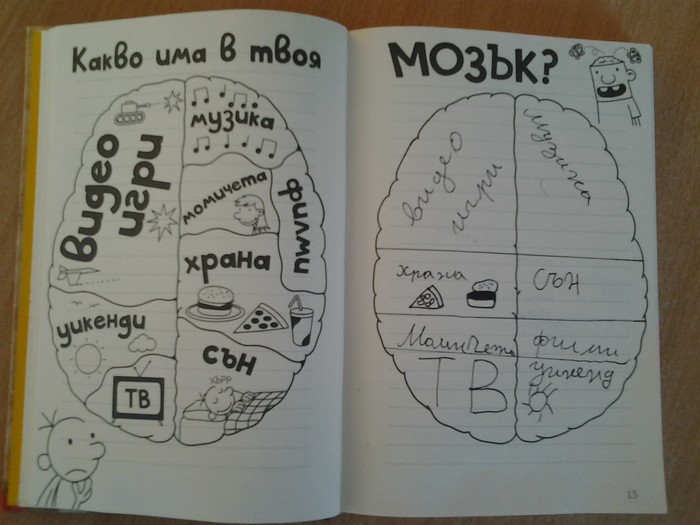 Какво има в твоя
МОЗЪК?
видео
игри
музика
момичета
филми
храна
уикенди
ТВ
сън
ХЪРР
видео
игри
музика
храна
сън
Момичета
филми
ТВ
уикенд
13